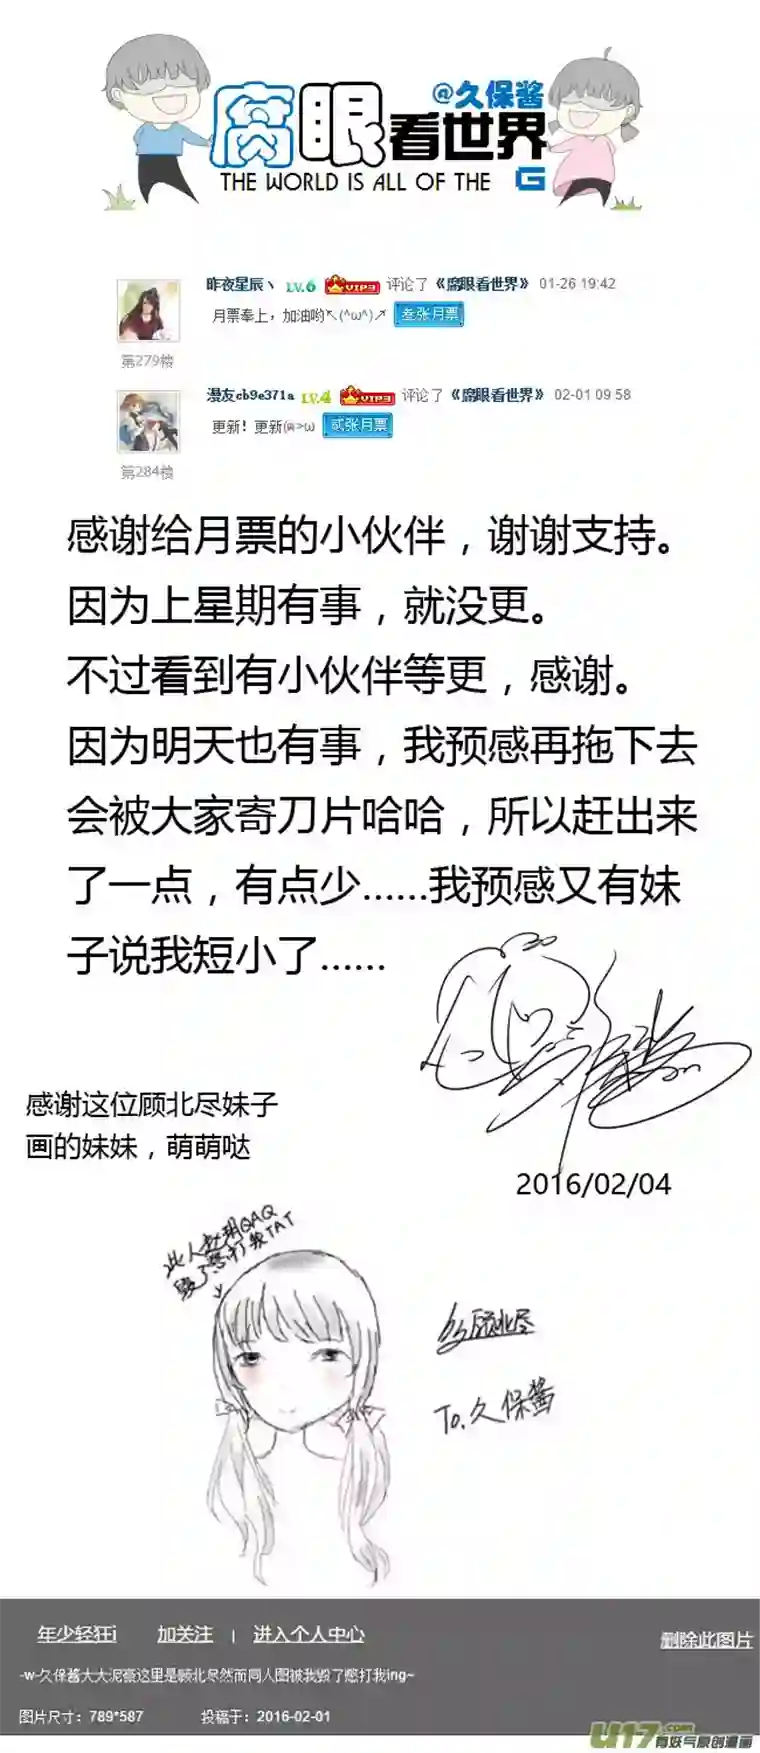 @久保酱
腐眼看世界
THE WORLD IS ALL OF THE G
昨夜星辰丶 LV.6 VIP3 评论了《腐眼看世界》 01-26 19:42
月票奉上，加油哟↖(^ω^)↗ 叁张月票
第279楼
漫友cb9e371a LV.4 VIP3 评论了《腐眼看世界》 02-01 09:58
更新！更新(≧>ω 贰张月票
第284楼
感谢给月票的小伙伴，谢谢支持。
因为上星期有事，就没更。
不过看到有小伙伴等更，感谢。
因为明天也有事，我预感再拖下去
会被大家寄刀片哈哈，所以赶出来
了一点，有点少……我预感又有妹
子说我短小了……
感谢这位顾北尽妹子
画的妹妹，萌萌哒
2016/02/04
此人QAQ
毁了憋打我TAT
by顾北尽
To.久保酱
年少轻狂i 加关注 | 进入个人中心
删除此图片
-w-久保酱大大泥豪这里是顾北尽然而同人图被我毁了憋打我ing~
图片尺寸：789*587 投稿于：2016-02-01
U17.com
有妖气原创漫画